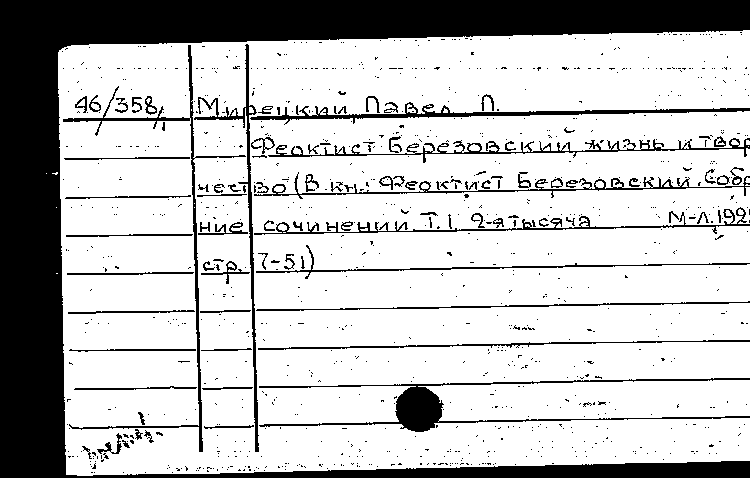 46/358/1 Мирецкий, Павел П.
Феоктист Березовский, жизнь и твор
чество (В кн.: Феоктист Березовский. Собр
ние сочинений. Т.I. 2-я тысяча М-Л. 192
стр. 7-51)